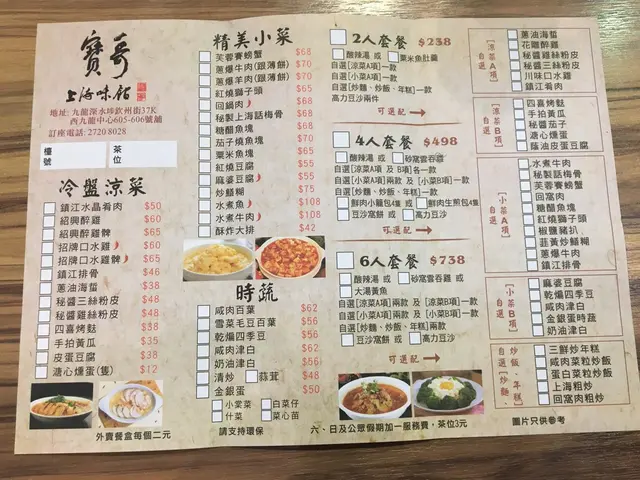 寶哥
上海味館
地址: 九龍深水埗欽州街37K
西九龍中心605-606號舖
訂座電話: 2720 8028
檯號
茶位
冷盤涼菜
鎮江水晶肴肉 $50
紹興醉雞 $60
紹興醉雞髀 $65
招牌口水雞 $60
招牌口水雞髀 $65
鎮江排骨 $46
蔥油海蜇 $38
秘醬三絲粉皮 $48
秘醬雞絲粉皮 $48
四喜烤麩 $38
手拍黃瓜 $35
皮蛋豆腐 $38
溏心燻蛋(隻) $12
外賣餐盒每個二元
精美小菜
芙蓉賽螃蟹 $68
蔥爆牛肉(跟薄餅) $70
蔥爆羊肉(跟薄餅) $70
紅燒獅子頭 $65
回鍋肉 $68
秘製上海話梅骨 $68
糖醋魚塊 $68
茄子燒魚塊 $70
粟米魚塊 $65
紅燒豆腐 $55
麻婆豆腐 $55
炒鱔糊 $75
水煮魚 $108
水煮牛肉 $108
酥炸大排 $42
時蔬
咸肉百葉 $62
雪菜毛豆百葉 $56
乾煸四季豆 $56
咸肉津白 $62
奶油津白 $56
清炒 蒜茸 $48
金銀蛋 $50
小棠菜 白菜仔
什菜 菜心苗
請支持環保
2人套餐 $238
酸辣湯 或 粟米魚肚羹
自選[涼菜A項]一款
自選[小菜A項]一款
自選[炒麵、炒飯、年糕]一款
高力豆沙兩件
可選配
4人套餐 $498
酸辣湯 或 砂窩雲吞雞
自選[涼菜A及B項]各一款
自選[小菜A項]兩款 及 [小菜B項]一款
自選[炒麵、炒飯、年糕]一款
鮮肉小籠包4隻 或 鮮肉生煎包4隻
豆沙窩餅 或 高力豆沙
可選配
6人套餐 $738
酸辣湯 或 砂窩雲吞雞 或
大湯黃魚
自選[涼菜A項]兩款 及 [涼菜B項]一款
自選[小菜A項]兩款 及 [小菜B項]一款
自選[炒麵、炒飯、年糕]兩款
豆沙窩餅 或 高力豆沙
可選配
六、日及公眾假期加一服務費，茶位3元
自選 [涼菜A項]
蔥油海蜇
花雕醉雞
秘醬雞絲粉皮
秘醬三絲粉皮
川味口水雞
鎮江肴肉
自選 [涼菜B項]
四喜烤麩
手拍黃瓜
秘醬茄子
溏心燻蛋
蔭油皮蛋豆腐
自選 [小菜A項]
水煮牛肉
秘製話梅骨
芙蓉賽螃蟹
回窩肉
糖醋魚塊
紅燒獅子頭
椒鹽豬扒
韮黃炒鱔糊
蔥爆牛肉
鎮江排骨
自選 [小菜B項]
麻婆豆腐
乾煸四季豆
咸肉津白
金銀蛋時蔬
奶油津白
自選 [炒麵、炒飯、年糕]
三鮮炒年糕
咸肉菜粒炒飯
蛋白菜粒炒飯
上海粗炒
回窩肉粗炒
圖片只供參考